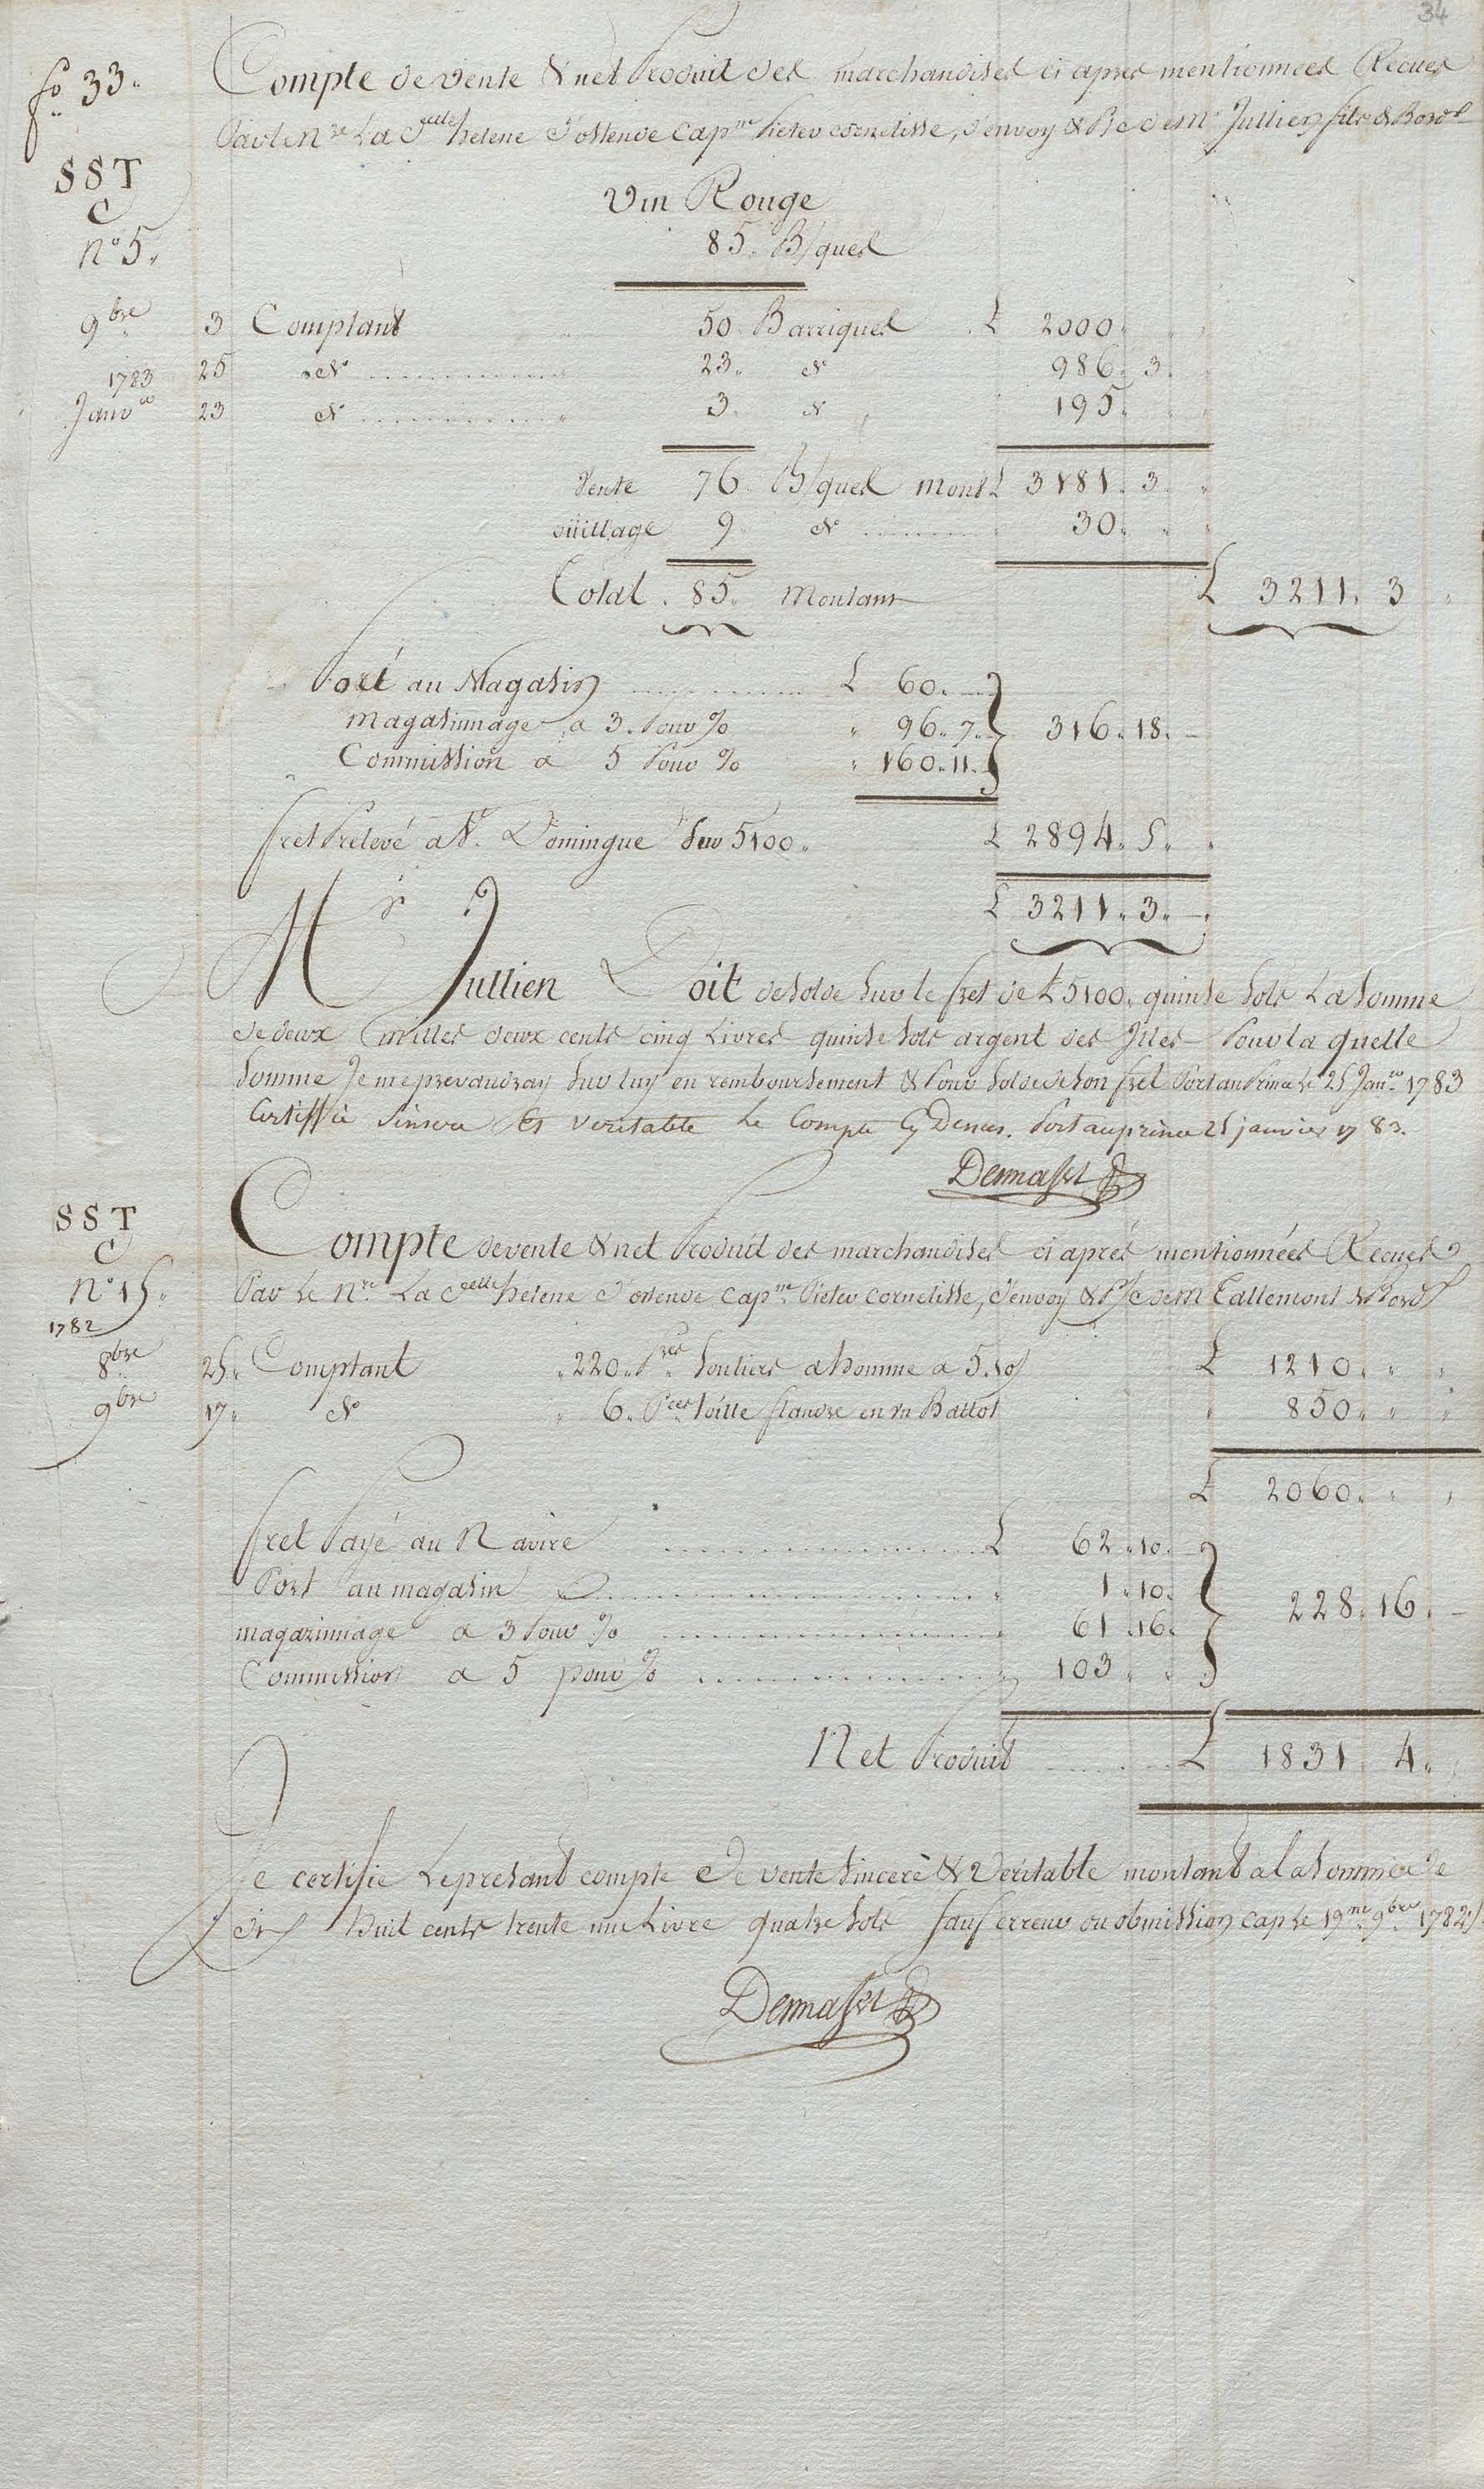 34
fo 33.
Compte de vente & net Produit des marchandises ci apres mentionnees Recues
Par le Nre La Delle helene d'ostende Capne Pieter cornelisse, d'envoy & Pr Cte de Mr Jullien fils de Bordx
SST
C
n° 5.
Vin Rouge
85. B/ques
9bre 3 Comptant 50 Barriques £ 2000. " "
25 do 23. do 986. 3.
1783
Janver 23 do 3. do 195. " "
Vente 76 B/ques mont £ 3181. 3. "
oüillage 9 do 30. " "
Total. 85. Montant £ 3211. 3 "
Port au Magasin £ 60. —
magasinnage a 3. Pour % " 96. 7. — 316. 18. —
Commission a 5 Pour % " 160. 11. —
fret Prelevé a St. Domingue sur 5100. £ 2894. 5. "
£ 3211. 3. —
Mr Jullien Doit de solde sur le fret de £ 5100. quinse sols La somme
de deux milles deux cents cinq Livres quinse sols argent des Isles Pour la quelle
somme Je me prevaudray sur luy en remboursement & Pour solde de son fret Port au Prince le 25 Janver 1783
Certiffié sinsere Et veritable le Compte Cy Dessus. Port au prince 25 janvier 1783.
SST
C
n° 15.
Compte de vente & net Produit des marchandises ci aprés mentionnées Recues
Par Le Nre La Delle helene d'ostende Capne Pieter cornelisse, d'envoy & P/C de M Tallemont de Bordx
1782
8bre 25. Comptant " 220. Pres souliers a homme a 5.10s £ 1210. " "
9bre 17. do " 6. Pces toille flandre en un Ballot " 850. " "
£ 2060. " "
fret Payé au Navire £ 62. 10. —
Port au magasin " 1. 10.
228. 16. —
magazinnage a 3 Pour % " 61. 16.
Commission a 5 pour % " 103. " "
Net Produit £ 1831. 4. "
Je certifie Le present compte de vente sincere & Veritable montant a la somme de
dix huit cents trente une Livre quatre sols sauf erreur ou obmission cap le 19me 9bre 1782